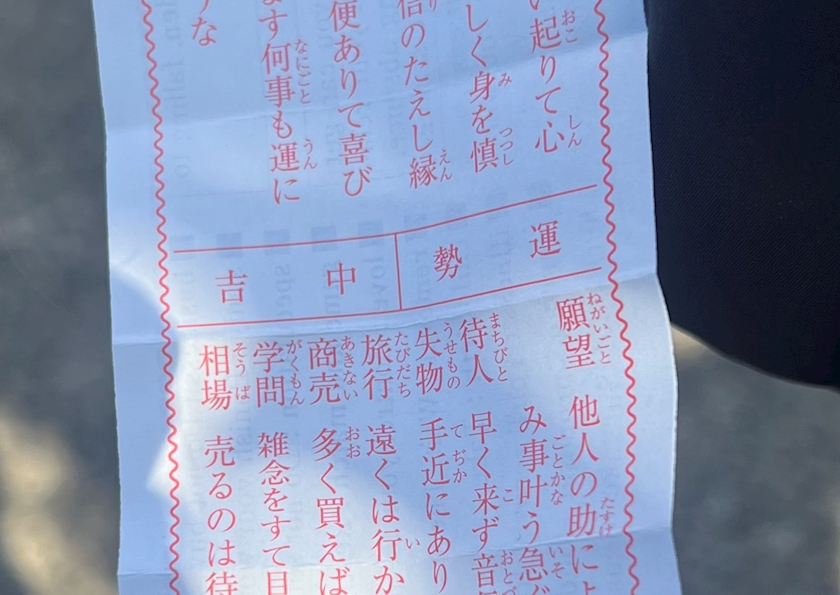 起りて心
しく身を慎
信のたえし縁
便ありて喜び
ます何事も運に
な
運勢
中吉
願望 他人の助に
み事叶う急
待人 早く来ず音
失物 手近にあり
旅行 遠くは行か
商売 多く買えば
学問 雑念をすて目
相場 売るのは待